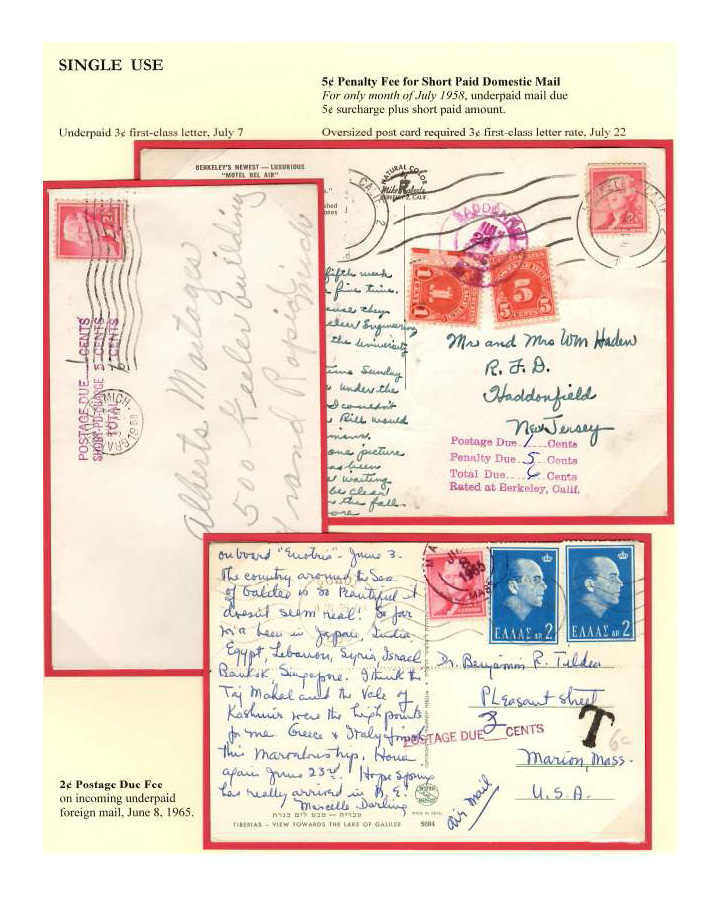 SINGLE USE
5¢ Penalty Fee for Short Paid Domestic Mail
For only month of July 1958, underpaid mail due
5¢ surcharge plus short paid amount.
Underpaid 3¢ first-class letter, July 7
Oversized post card required 3¢ first-class letter rate, July 22
BERKELEY'S NEWEST — LUXURIOUS
"MOTEL BEL AIR"
NATURAL COLOR
Mike Roberts
BERKELEY 2, CALIF.
fifth week
fine time.
they
Engineering
the University
Sunday
under the
I couldn't
Bill would
one picture
been
waiting
be clear
the fall.
POSTAGE DUE
1
5
CENTS
Mr and Mrs Wm Haden
R. F. D.
Haddonfield
New Jersey
Postage Due 1 Cents
Penalty Due 5 Cents
Total Due 6 Cents
Rated at Berkeley, Calif.
2¢
POSTAGE DUE 1 CENTS
SHORT-PD-CHARGE 5 CENTS
TOTAL 6 CENTS
MICH.
1958
Alberta Montages
500 Keeler building
Grand Rapids Mich
on board "Enotria" - June 3.
The country around the Sea
of Galilee is so beautiful it
doesn't seem real! So far
been in Japan, India,
Egypt, Lebanon, Syria, Israel
Bankok, Singapore. I think the
Taj Mahal and the Vale of
Kashmir were the high points
for me. Greece & Italy
this marvelous trip. Home
again June 23rd. Hope spring
has really arrived in
Marcelle Darling
טבריה - מבט לים כנרת
TIBERIAS - VIEW TOWARDS THE LAKE OF GALILEE 5684
1965
MASS
ΕΛΛΑΣ ΔΡ 2
ΕΛΛΑΣ ΔΡ 2
Dr. Benjamin R. Tilden
Pleasant Street
POSTAGE DUE 2 CENTS
T
6¢
Marion, Mass.
U.S.A.
air mail
2¢ Postage Due Fee
on incoming underpaid
foreign mail, June 8, 1965.